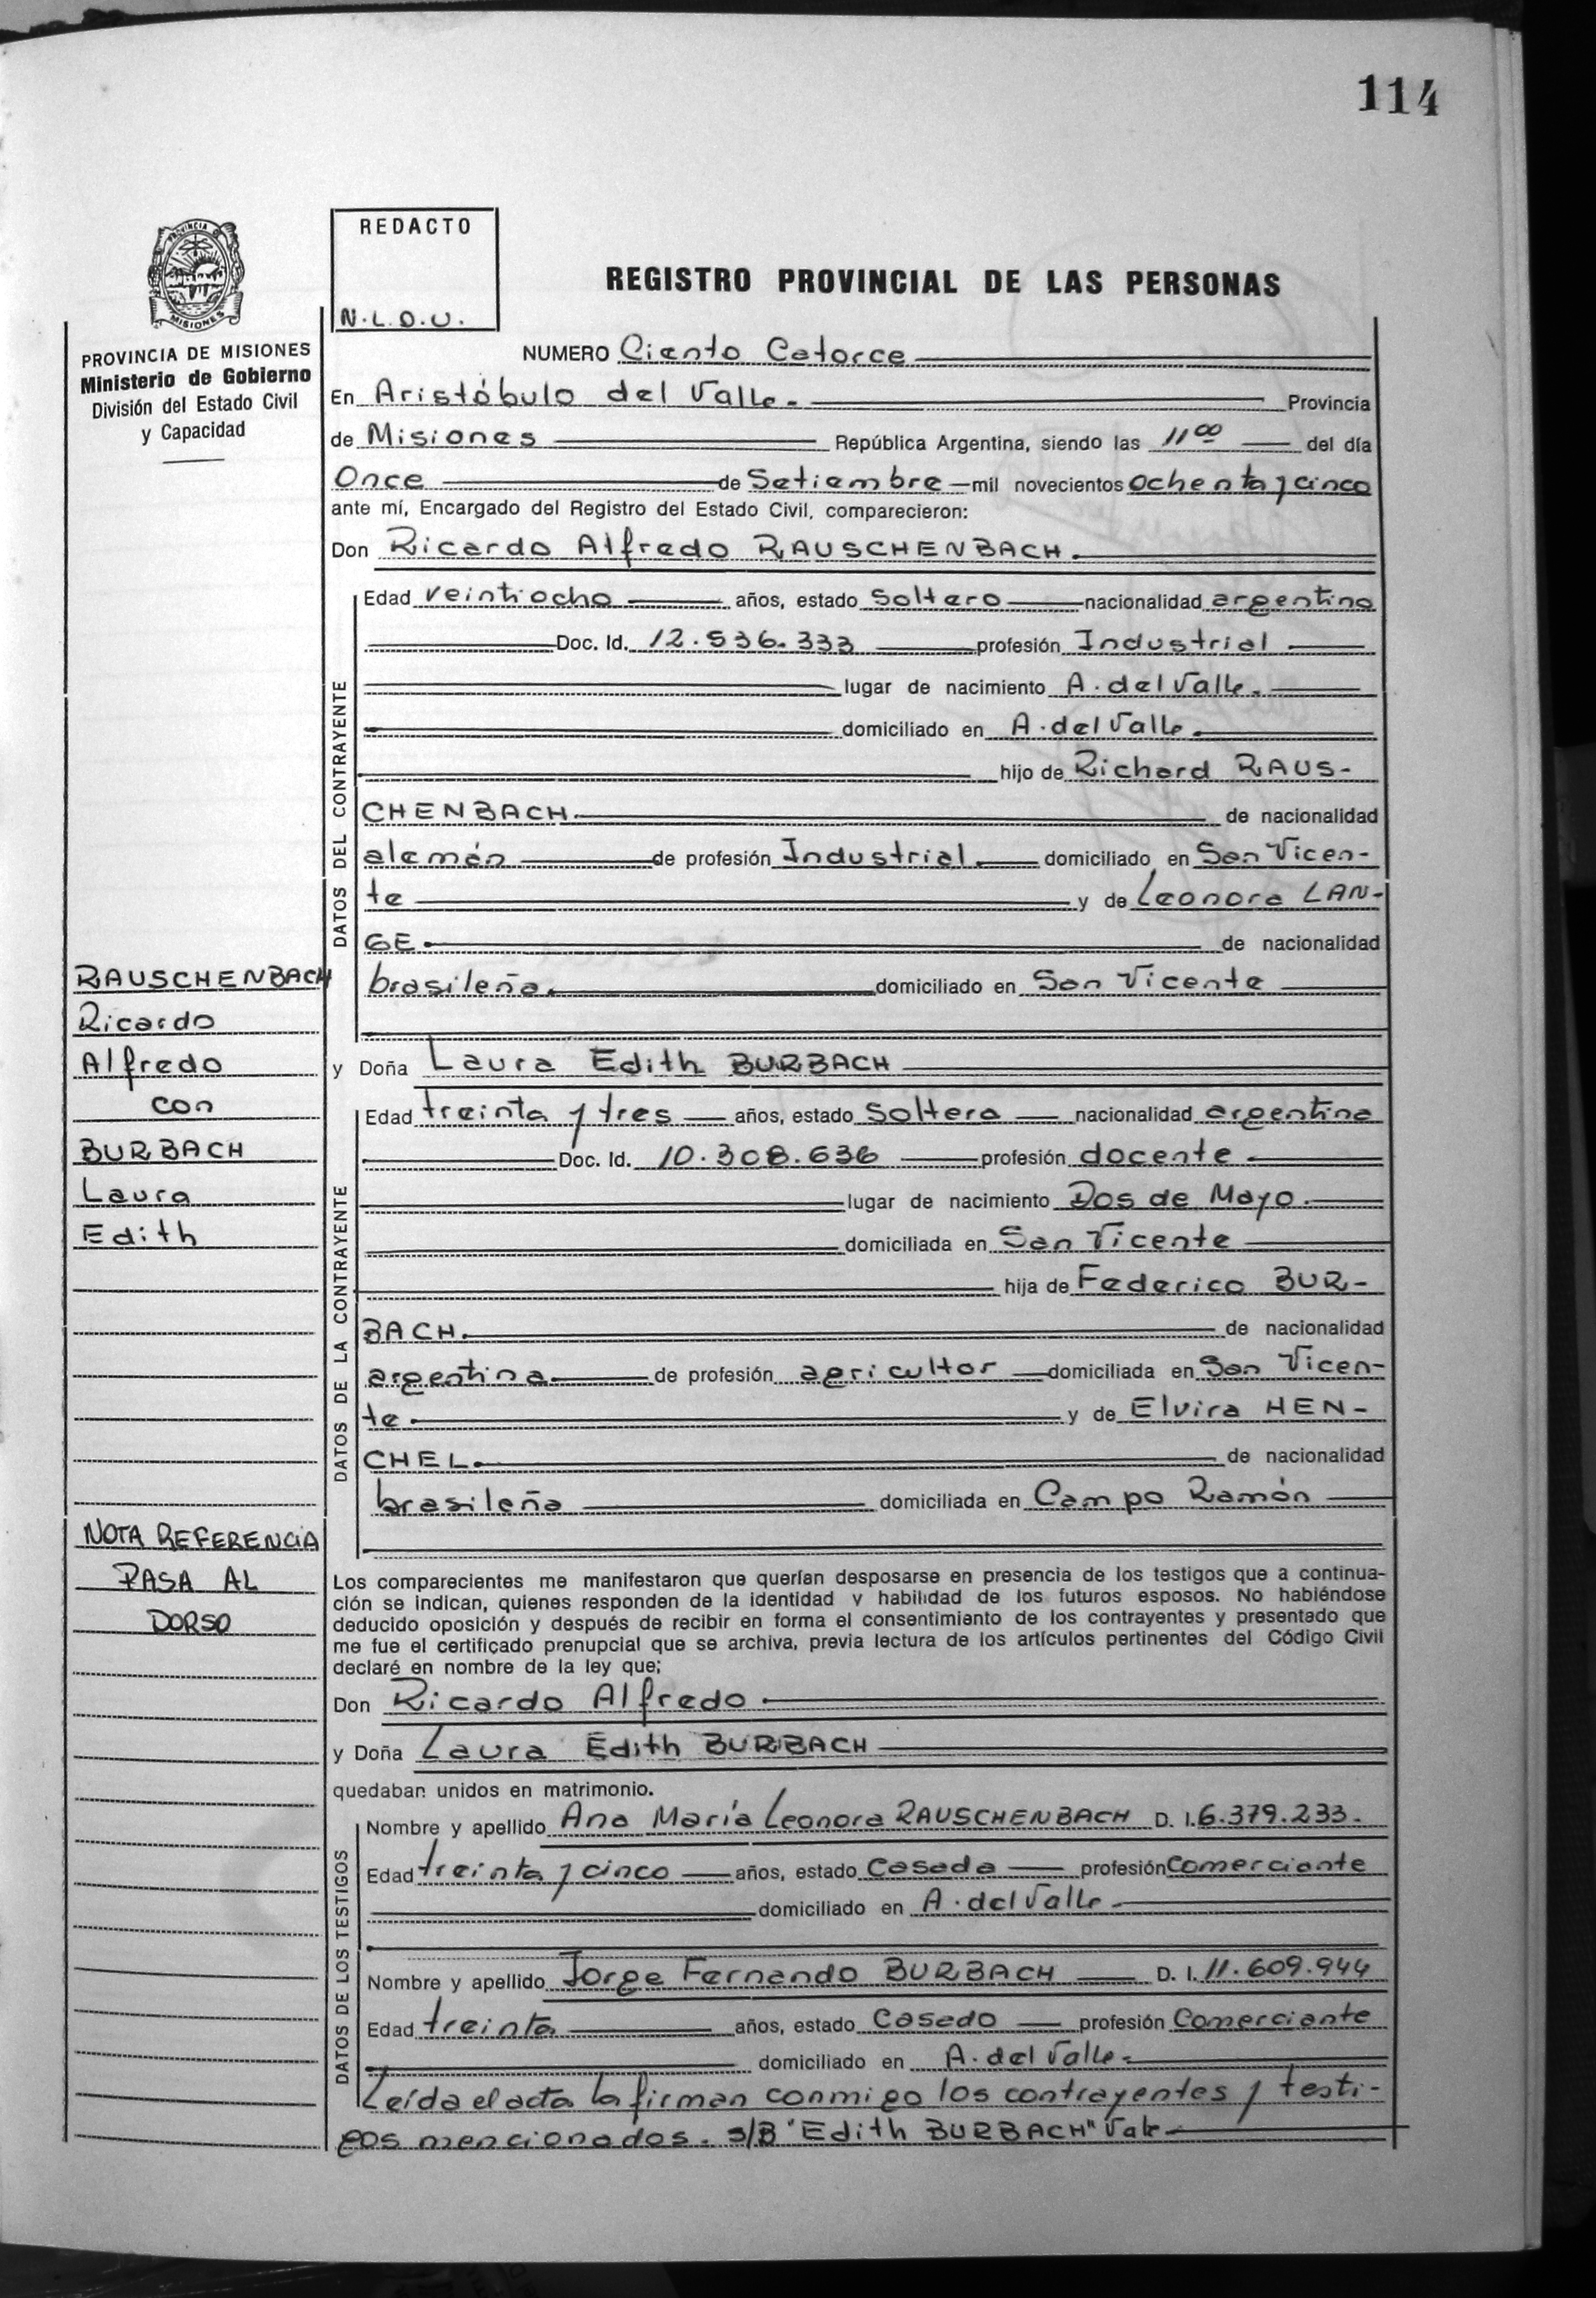 114
PROVINCIA DE
MISIONES
REDACTO
N.L.D.U.
REGISTRO PROVINCIAL DE LAS PERSONAS
PROVINCIA DE MISIONES
Ministerio de Gobierno
División del Estado Civil
y Capacidad
NUMERO Ciento Catorce
En Aristóbulo del Valle. Provincia
de Misiones República Argentina, siendo las 11 00 del día
Once de Setiembre mil novecientos ochenta y cinco
ante mí, Encargado del Registro del Estado Civil, comparecieron:
Don Ricardo Alfredo RAUSCHENBACH.
DATOS DEL CONTRAYENTE
Edad veintiocho años, estado soltero nacionalidad argentino
Doc. Id. 12.536.333 profesión Industrial
lugar de nacimiento A. del Valle.
domiciliado en A. del Valle.
hijo de Richard RAUS-
CHENBACH. de nacionalidad
alemán de profesión Industrial. domiciliado en San Vicen-
te y de Leonora LAN-
GE. de nacionalidad
brasileña. domiciliado en San Vicente
RAUSCHENBACH
Ricardo
Alfredo
con
BURBACH
Laura
Edith
y Doña Laura Edith BURBACH
DATOS DE LA CONTRAYENTE
Edad treinta y tres años, estado soltera nacionalidad argentina
Doc. Id. 10.308.636 profesión docente
lugar de nacimiento Dos de Mayo.
domiciliada en San Vicente
hija de Federico BUR-
BACH. de nacionalidad
argentina. de profesión agricultor domiciliada en San Vicen-
te. y de Elvira HEN-
CHEL. de nacionalidad
brasileña domiciliada en Campo Ramón
NOTA REFERENCIA
PASA AL
DORSO
Los comparecientes me manifestaron que querían desposarse en presencia de los testigos que a continua-
ción se indican, quienes responden de la identidad y habilidad de los futuros esposos. No habiéndose
deducido oposición y después de recibir en forma el consentimiento de los contrayentes y presentado que
me fue el certificado prenupcial que se archiva, previa lectura de los artículos pertinentes del Código Civil
declaré en nombre de la ley que;
Don Ricardo Alfredo.
y Doña Laura Edith BURBACH
quedaban unidos en matrimonio.
DATOS DE LOS TESTIGOS
Nombre y apellido Ana María Leonora RAUSCHENBACH D. I. 6.379.233.
Edad treinta y cinco años, estado Casada profesión Comerciante
domiciliado en A. del Valle.
Nombre y apellido Jorge Fernando BURBACH D. I. 11.609.944
Edad treinta años, estado Casado profesión Comerciante
domiciliado en A. del Valle.
Leída el acta la firman conmigo los contrayentes y testi-
gos mencionados. s/B "Edith BURBACH" Vale